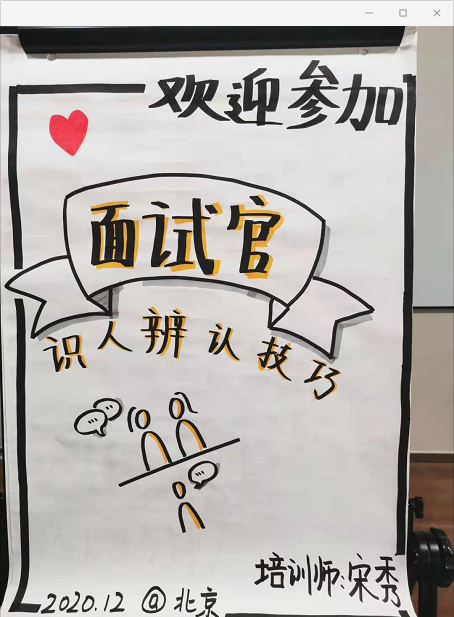 欢迎参加
面试官
识人辨认技巧
培训师:宋秀
2020.12 @北京